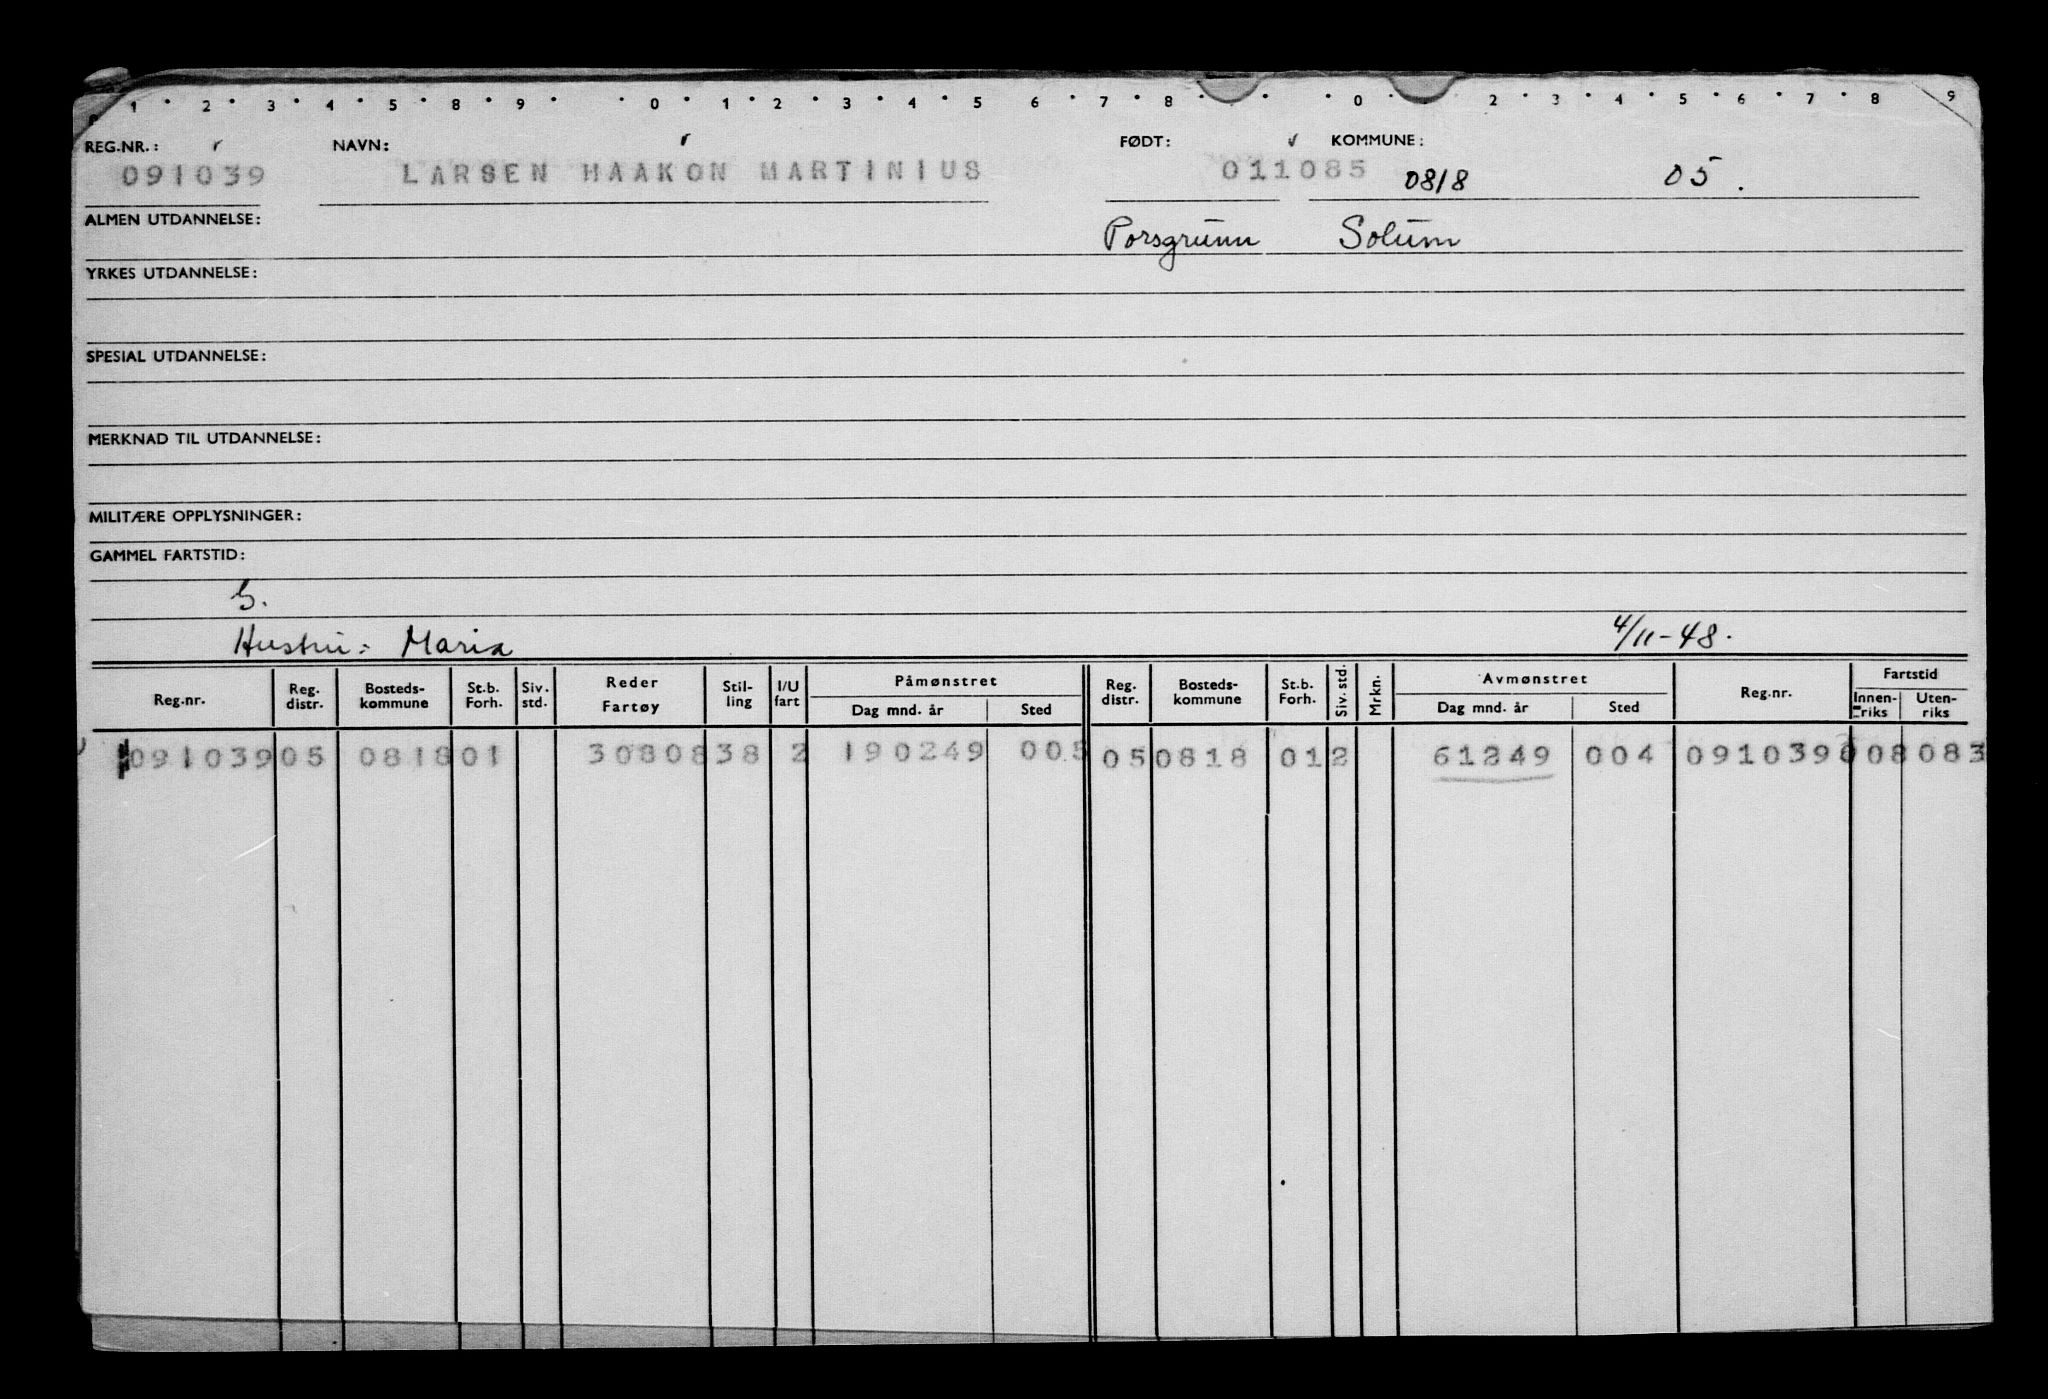 1 2 3 4 5 8 9 0 1 2 3 4 5 6 7 8 0 2 3 4 5 6 7 8 9
REG.NR.: NAVN: FØDT: KOMMUNE:
091039 LARSEN HAAKON MARTINIUS 011085 0818 05.
ALMEN UTDANNELSE: Porsgrunn Solum
YRKES UTDANNELSE:
SPESIAL UTDANNELSE:
MERKNAD TIL UTDANNELSE:
MILITÆRE OPPLYSNINGER:
GAMMEL FARTSTID:
G.
Hustru: Maria 4/11-48.
Reg.nr. Reg. distr. Bosteds-kommune St.b. Forh. Siv. std. Reder Fartøy Stil-ling I/U fart Påmønstret Dag mnd. år Sted Reg. distr. Bosteds-kommune St.b. Forh. Siv. std. Mrkn. Avmønstret Dag mnd. år Sted Reg.nr. Fartstid Innen-riks Uten-riks
091039 05 0818 01 30808 38 2 190249 005 05 0818 01 2 61249 004 091039 008 083